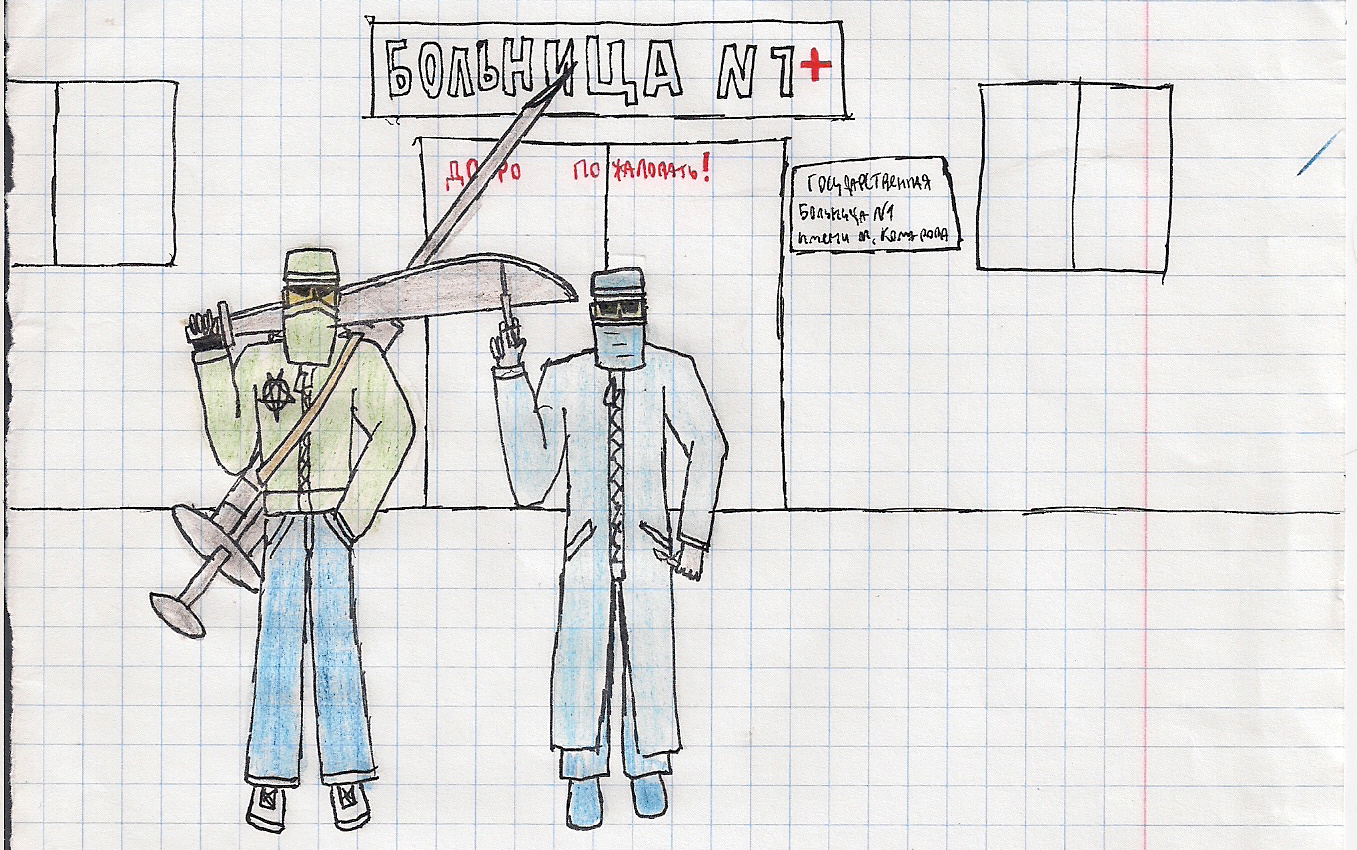 БОЛЬНИЦА N1+
ДОБРО ПОЖАЛОВАТЬ!
ГОСУДАРСТВЕННАЯ
БОЛЬНИЦА N1
ИМЕНИ М. КОМАРОВА